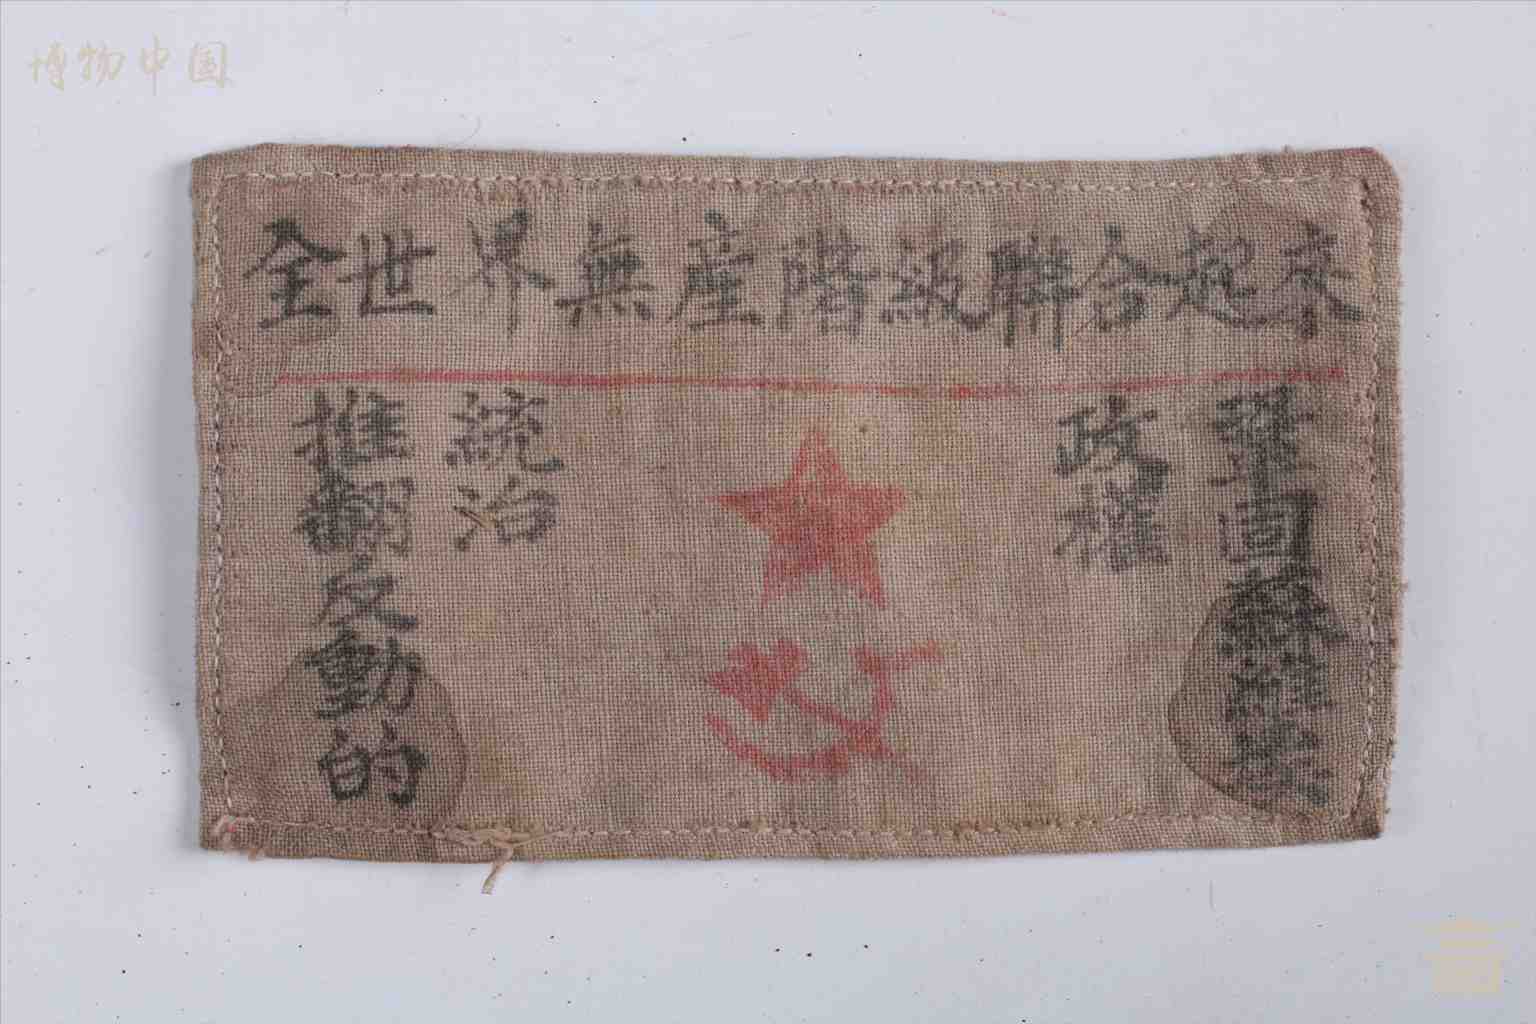 博物中国
全世界無産階級聯合起来
鞏固蘇維埃
政權
統治
推翻反動的